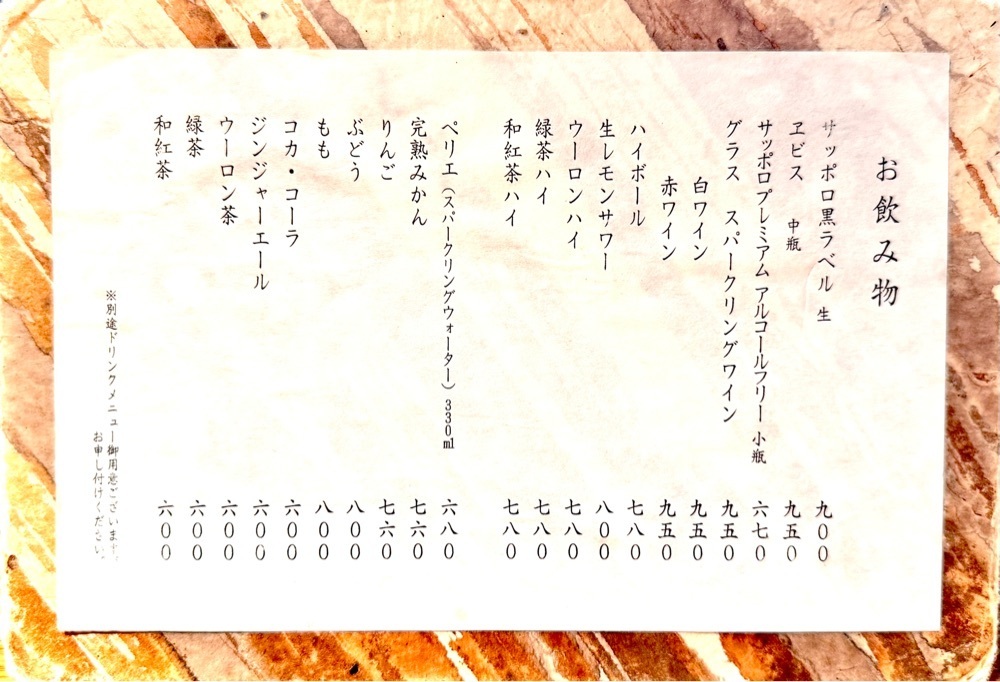 お飲み物
サッポロ黒ラベル 生 九〇〇
ヱビス 中瓶 九五〇
サッポロプレミアム アルコールフリー 小瓶 六七〇
グラス スパークリングワイン 九五〇
白ワイン 九五〇
赤ワイン 九五〇
ハイボール 七八〇
生レモンサワー 八〇〇
ウーロンハイ 七八〇
緑茶ハイ 七八〇
和紅茶ハイ 七八〇
ペリエ（スパークリングウォーター）330ml 六八〇
完熟みかん 七六〇
りんご 七六〇
ぶどう 八〇〇
もも 八〇〇
コカ・コーラ 六〇〇
ジンジャーエール 六〇〇
ウーロン茶 六〇〇
緑茶 六〇〇
和紅茶 六〇〇
※別途ドリンクメニュー御用意ございます。
お申し付けください。